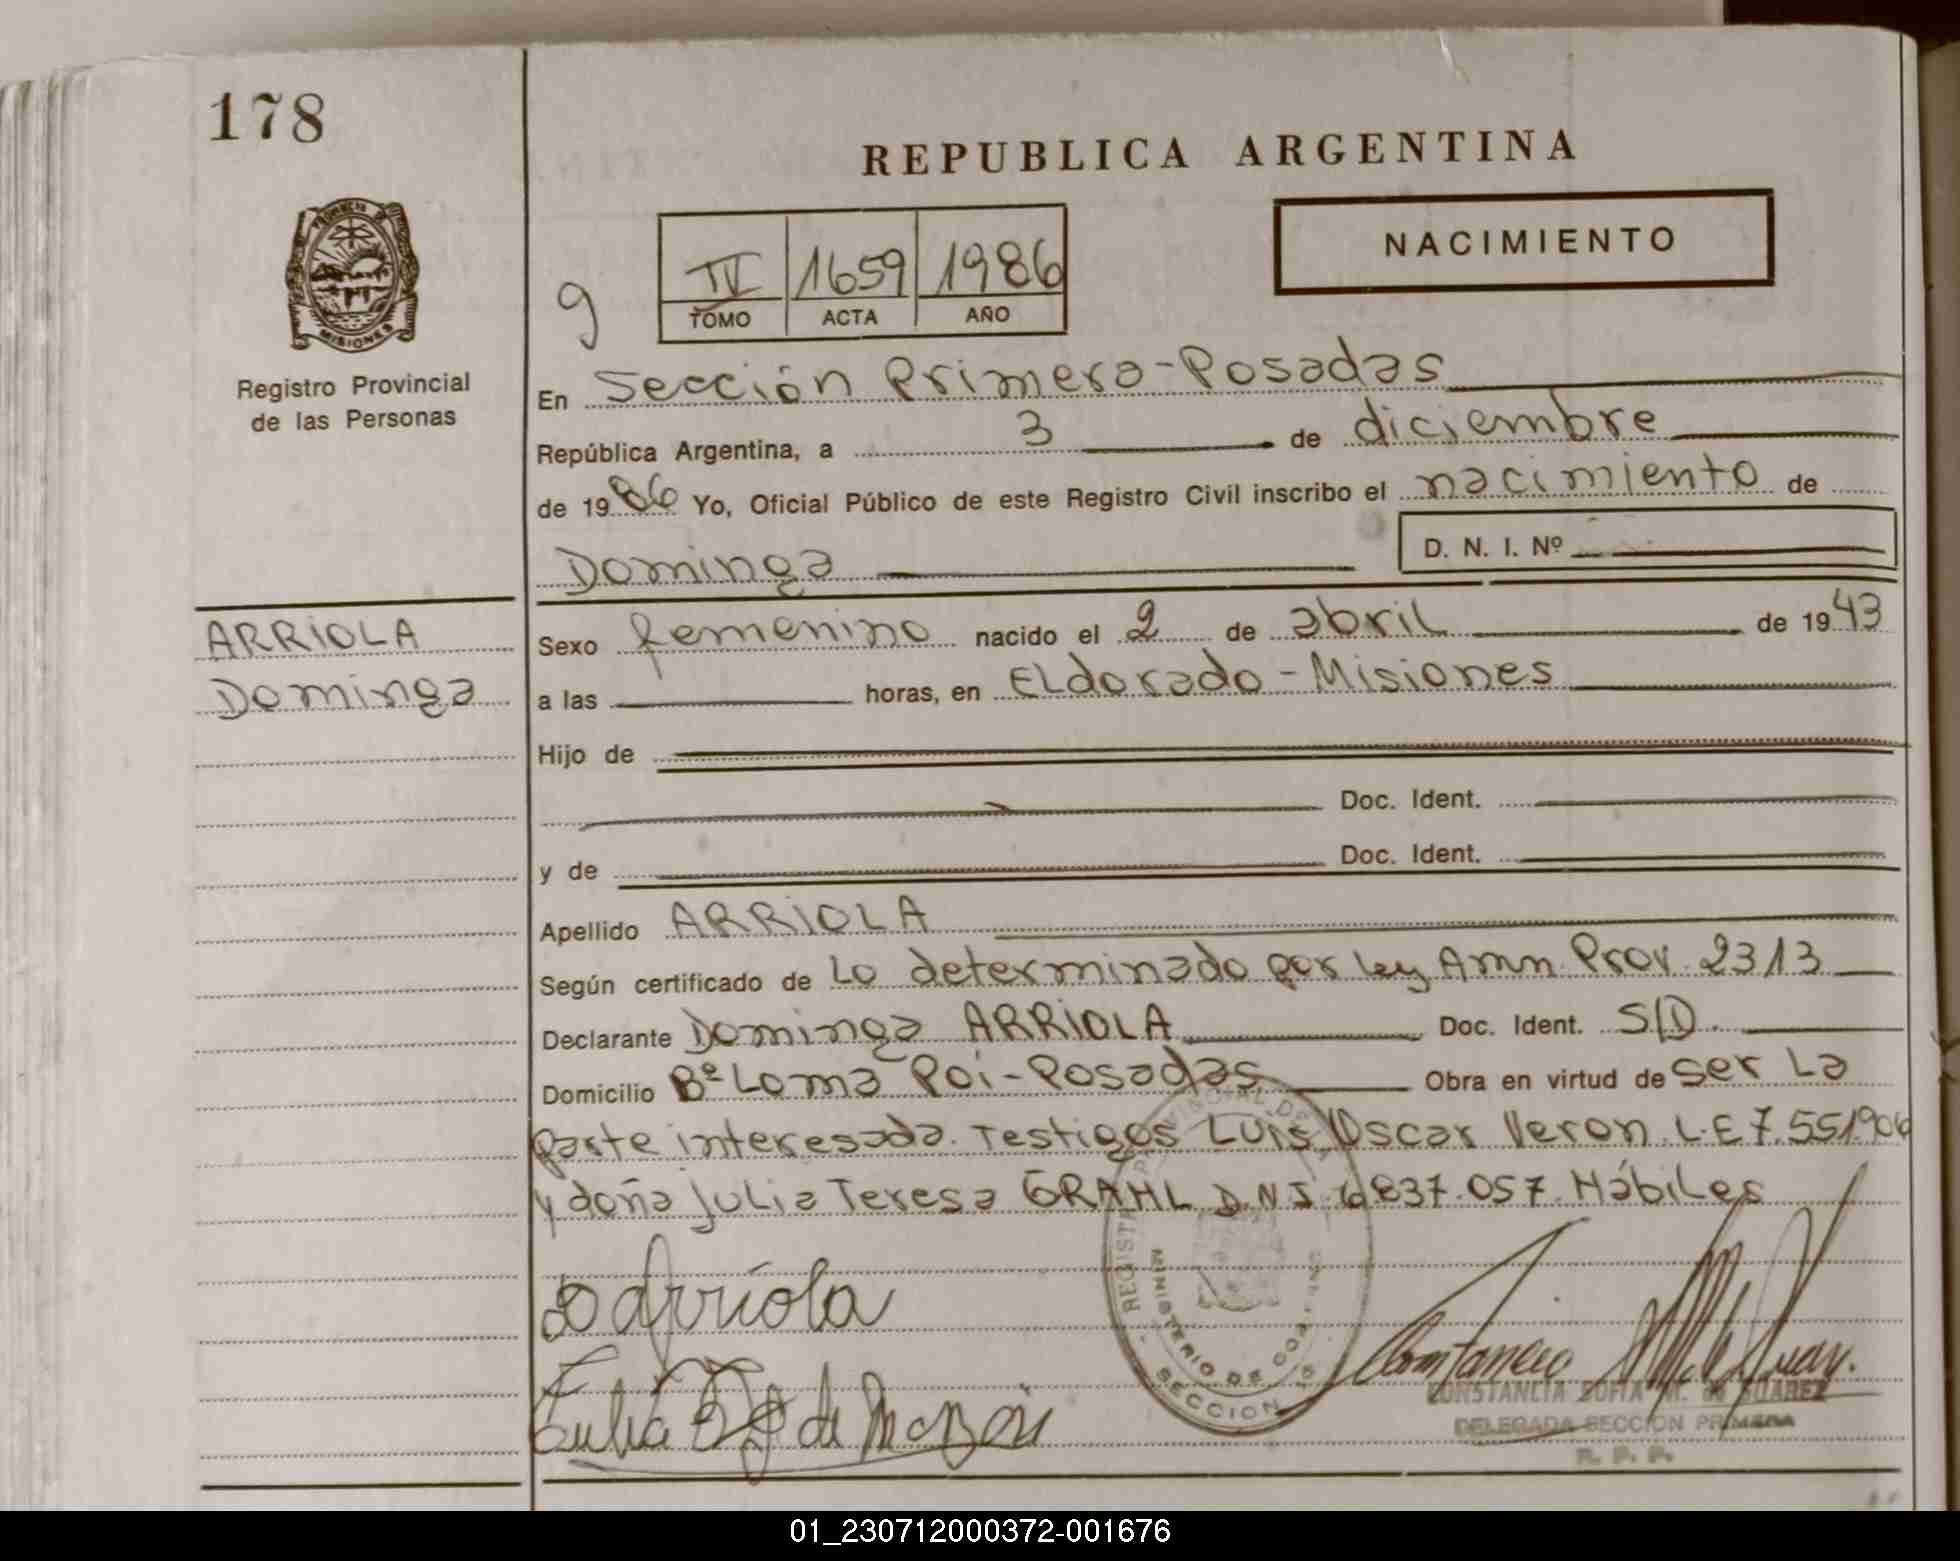 178
REPUBLICA ARGENTINA
PROVINCIA DE MISIONES
NACIMIENTO
g
IV 1659 1986
TOMO ACTA AÑO
Registro Provincial
de las Personas
En Sección Primera-Posadas
República Argentina, a 3 de diciembre
de 1986 Yo, Oficial Público de este Registro Civil inscribo el nacimiento de
D. N. I. Nº
Dominga
ARRIOLA
Dominga
Sexo femenino nacido el 2 de abril de 1943
a las horas, en ELdorado-Misiones
Hijo de
Doc. Ident.
y de Doc. Ident.
Apellido ARRIOLA
Según certificado de Lo determinado por Ley Amn. Prov. 2313
Declarante Dominga ARRIOLA Doc. Ident. S/D.
Domicilio Bº Loma Poi-Posadas Obra en virtud de ser La
parte interesada. Testigos Luis Oscar Veron L.E 7.551.906
y doña Julia Teresa GRAHL D.N.I. 6837.057 Hábiles
D Arriola
CONSTANCIA SOFIA M. de SUAREZ
DELEGADA SECCION PRIMERA
R. P. P.
01_230712000372-001676